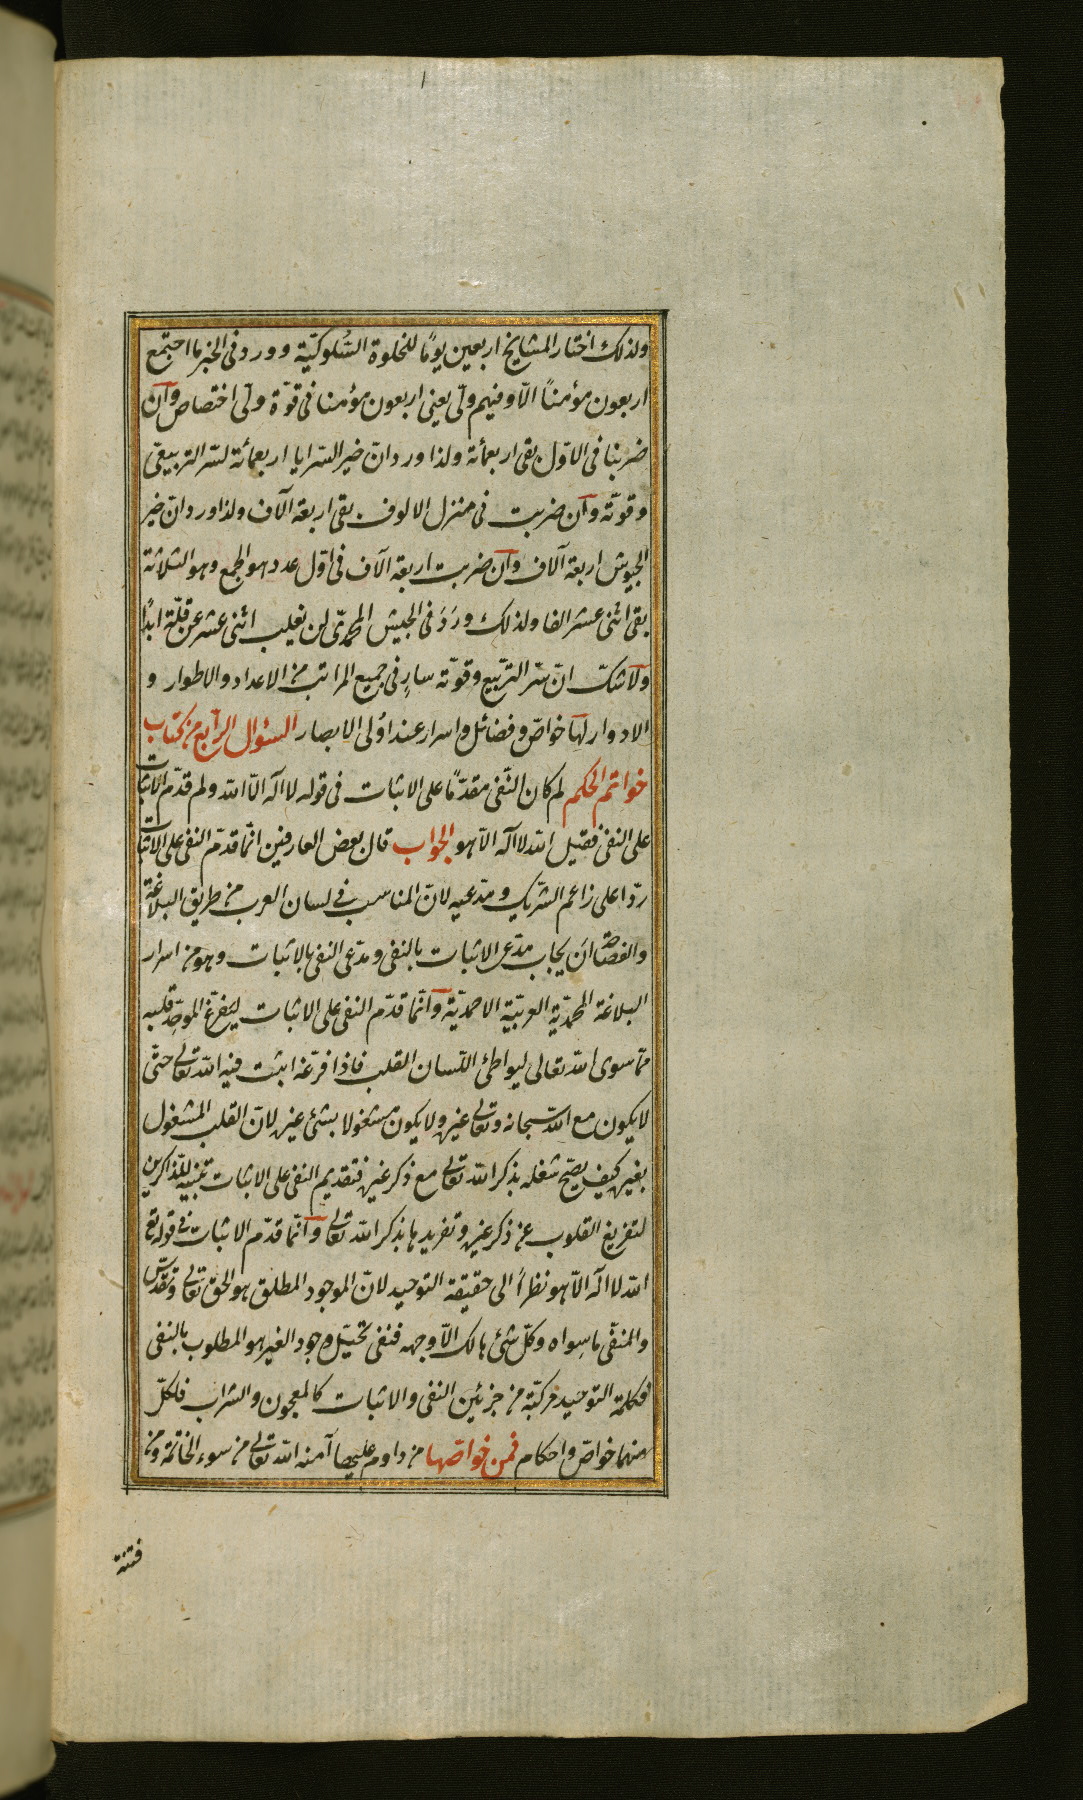 ولذلك اختار المشايخ اربعين يومًا للخلوة السُّلوكيّة وورد فى الخبر ما اجتمع
اربعون مؤمنًا الّا وفيهم ولىّ يعنى اربعون مؤمنا فى قوّة ولىّ اختصاص وان
ضربنا فى الاوّل بقى اربعمأئة ولذا ورد انّ خير السّرايا اربعمأئة لسّر التربيعىّ
وقوّته وان ضربت فى منزل الالوف بقى اربعة آلآف ولذا ورد انّ خير
الجيوش اربعة آلاف وان ضربت اربعة آلآف فى اوّل عدد هو الجمع وهو الثلاثة
بقى اثنى عشر الفا ولذلك ورَدَ فى الجيش المحمدىّ لن يغلب اثنى عشر عن قلّة ابدًا
ولا شكّ انّ سّر التربّيع وقوّته سارٍ فى جميع المراتب من الاعداد والاطوار و
الادوار لها خواصّ وفضائل واسرار عند اولى الابصار السئوال الرّابع من كتاب
خواتم الحكم لم كان النّفى مقدّمًا على الاثبات فى قوله لا اله الّا الله ولم قدّم الاثبات
على النفى فقيل الله لا اله الّا هو الجواب قال بعض العارفين انّما قدّم النفى على الاثبات
ردّا على زاعم الشّريك ومدّعيه لانّ المناسب فى لسان العرب من طريق البلاغة
والفصاحة ان يجاب مدّعى الاثبات بالنفى ومدّعى النفى بالاثبات وهو من اسرار
البلاغة المحمّديّة العربيّة الاحمديّة وانّما قدّم النفى على الاثبات ليفرّغ الموحّد قلبه
ممّا سوى الله تعالى ليواطئ اللّسان القلب فاذا فرّغه اثبت فيه الله تعالى حتّى
لا يكون مع الله سبحانه وتعالى غيره ولا يكون مشغولا بشئ غيره لانّ القلب المشغول
بغيره كيف يصّح شغله بذكر الله تعالى مع ذكر غيره فتقديم النفى على الاثبات تنبيه للذّاكرين
لتفريغ القلوب عن ذكر غيره وتفريدها بذكر الله تعالى وانّما قدّم الاثبات فى قوله تع
الله لا اله الّا هو نظرًا الى حقيقة التوحيد لانّ الموجود المطلق هو الحق تعالى وتقدّس
والمنفّى ما سِواه وكلّ شئ هالك الّا وجهه فنفى تخيّل وجود الغير هو المطلوب بالنفى
فكلمة التوحيد مركبّة من جزئين النفى والاثبات كالمعجون والشراب فلكلّ
منهما خواصّ واحكام فمن خواصّها من داوم عليها آمنه الله تعالى من سوء الخاتمة ومن
فتنة